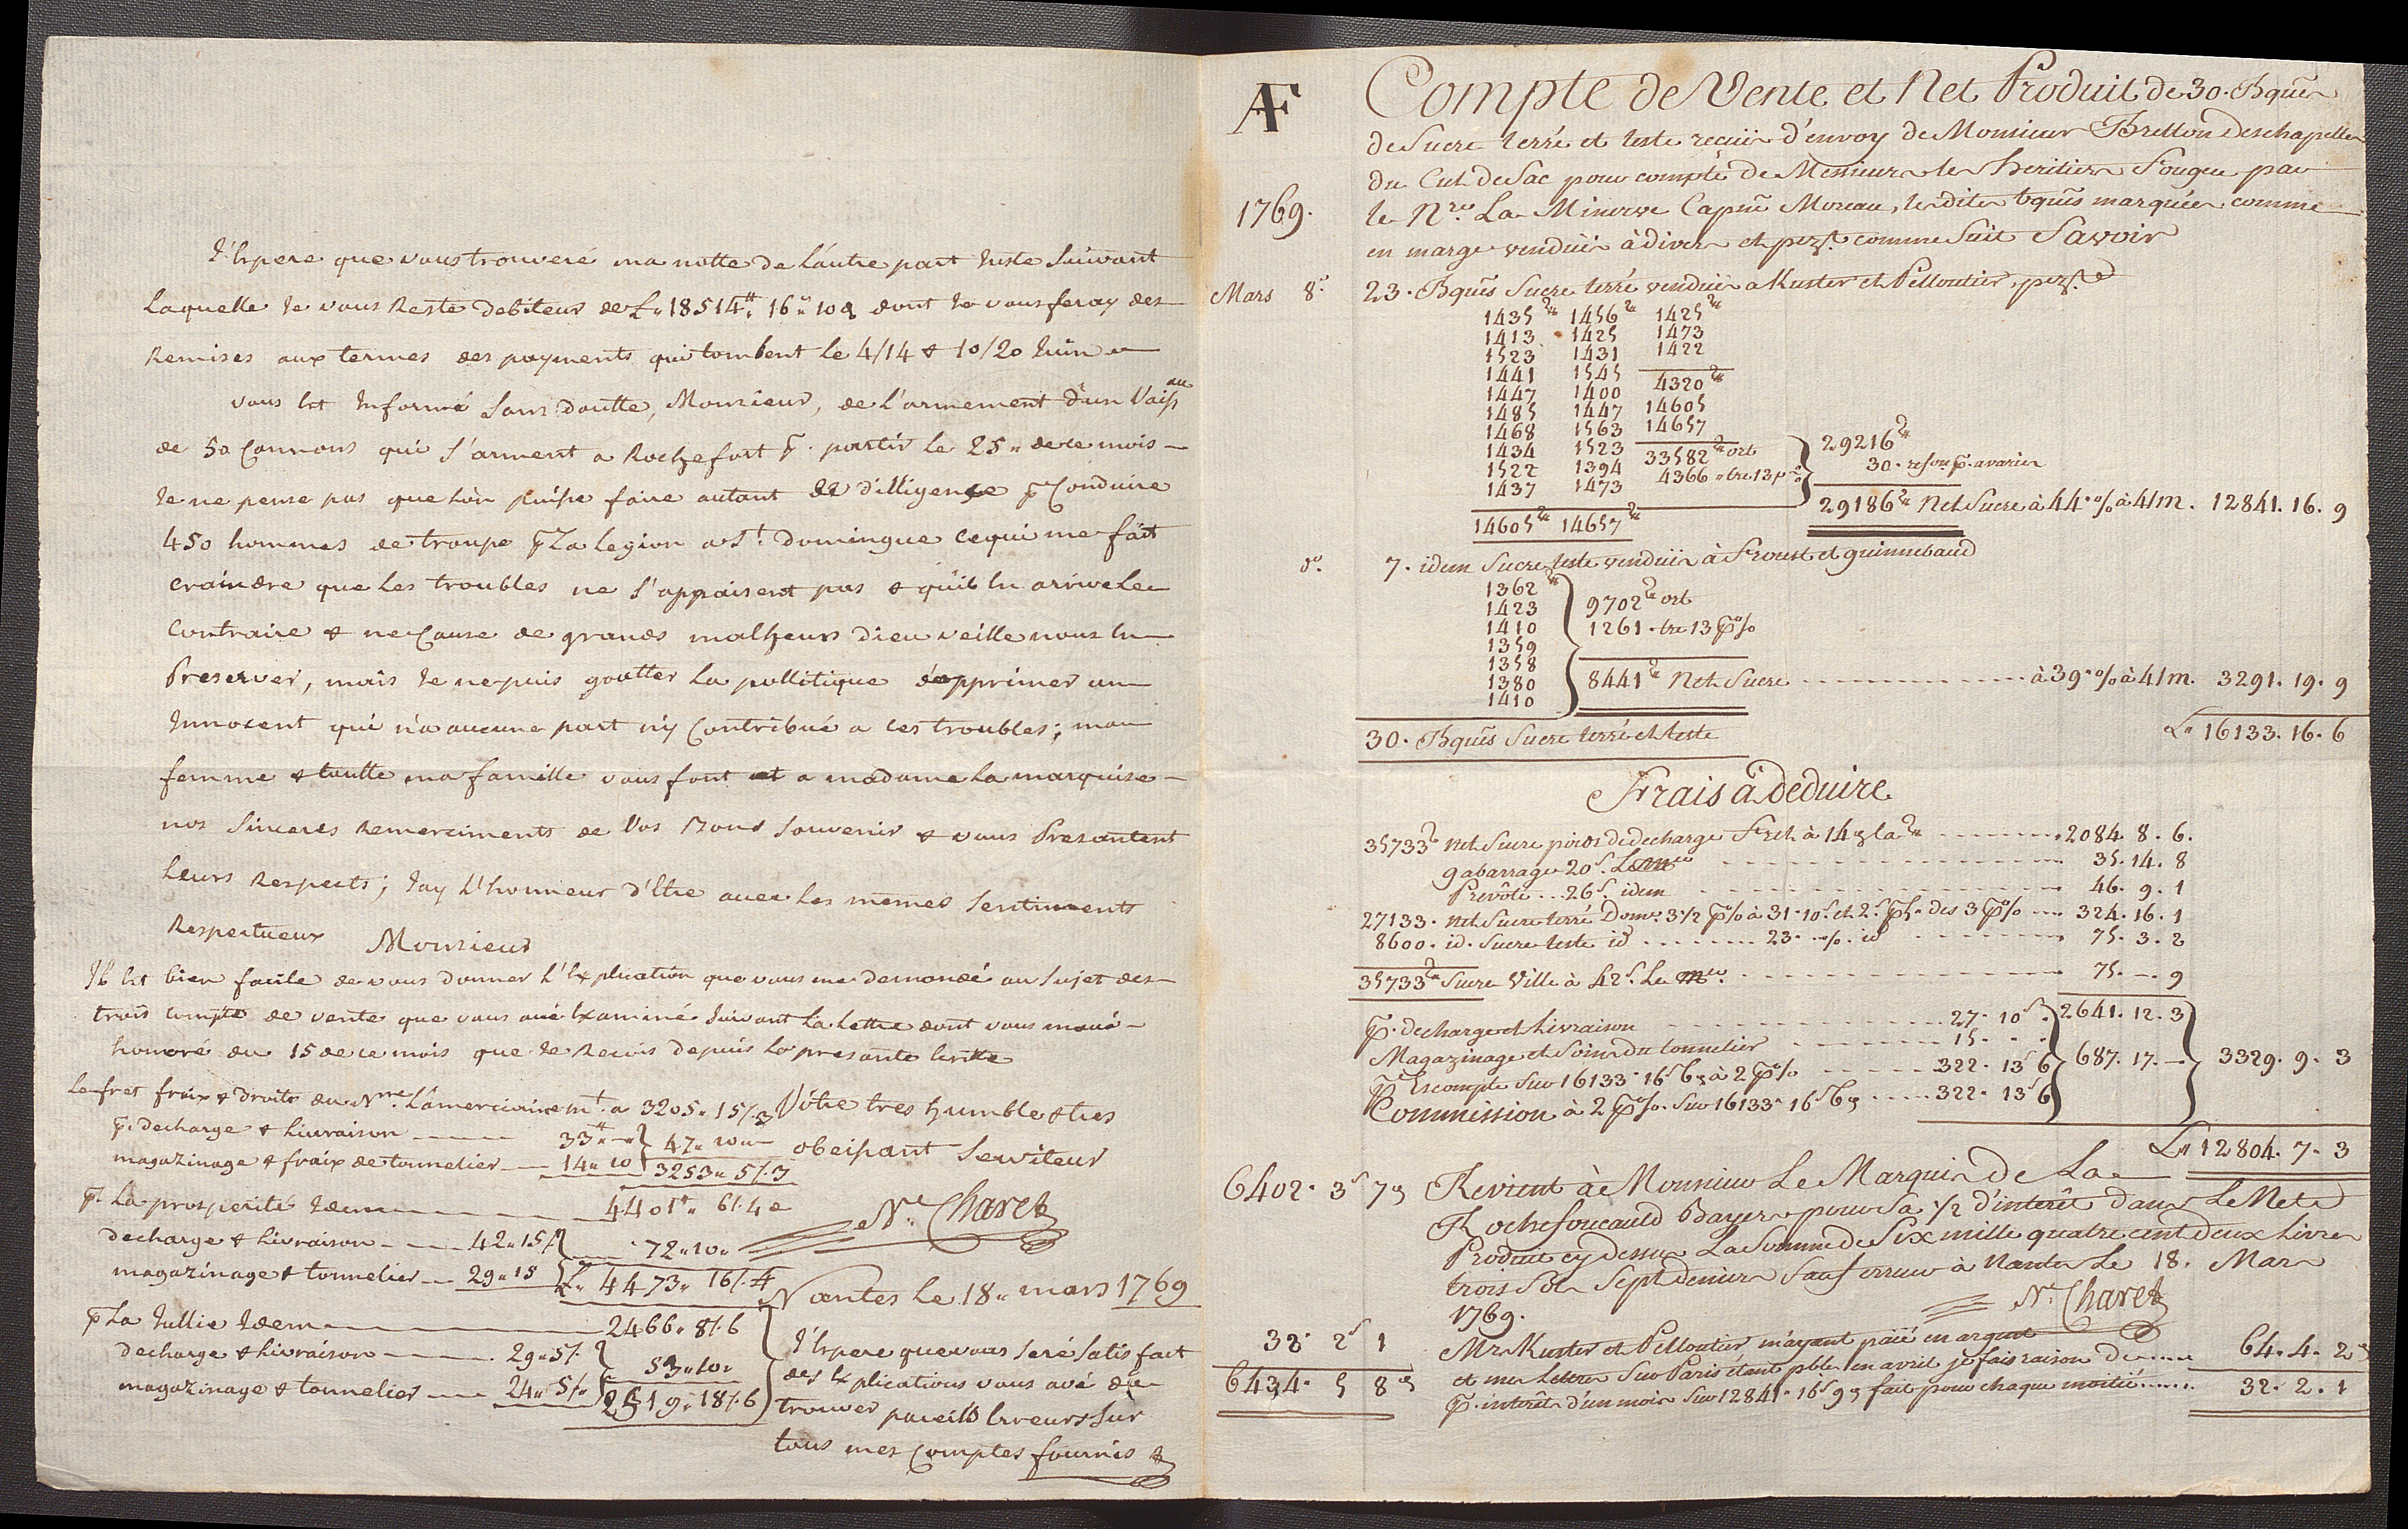 J'Espere que vous trouveré ma notte de L'autre part Juste Suivant
Laquelle Je vous Reste Debiteur de £.. 18514.tt 16.. 10 d dont Je vous feray des
Remises aux termes des payments qui tombent Le 4/14 & 10/20 Juin
vous Est Informé Sans doutte, Monsieur, de l'armement d'un Vaiss.au
de 50 Cannons qui S'arment a Rochefort p. partir Le 25.. de ce mois
Je ne pense pas que L'on puisse faire autant de dilligense p Conduire
450 hommes de troupe p La Legion a St. Domingue ce qui me fait
craindre que Les troubles ne S'appaisent pas & qu'il En arrive Le
Contraire & ne Cause de grands malheurs Dieu veille nous En
Preserver, mais Je ne puis goutter La pollitique d'opprimer un
Innocent qui n'a aucune part n'y Contribué a ces troubles; ma
femme & toutte ma famille vous font et a madame La marquise
nos Sinceres Remerciments de Vos Bons Souvenir & vous Presantent
Leurs Respects; J'ay L'honneur d'Etre avec Les mêmes Sentiments
Respectueux Monsieur
Il Est bien facile de vous donner L'Explication que vous me demandé au Sujet des
trois compte de vente que vous avé Examiné Suivant La Lettre dont vous m'avé
honoré du 15 de ce mois que Je Recois depuis La presante Ecritte
Le fret fraix & droits du N.re L'americaine m.t a 3205.. 15/.3
p. decharge & Livraison 33.tt
magazinage & fraix de tonnelier 14.. 10 } 47.. 10..
3253.. 5/.3
Vôtre tres humble & tres
obeissant Serviteur
N.. Charet
p. La prosperité Idem 4401.tt 6/.4
decharge & Livraison 42..15/
magazinage & tonnelier 29..15 } 72..10..
£.. 4473.. 16/.4
Nantes Le 18.. mars 1769
p La Jullie Idem 2466.. 8/.6
decharge & Livraison 29..5/.
magazinage & tonnelier 24.. 5/. } 53..10..
2519.. 18/.6
J'Espere que vous Seré Satisfait
des Explications vous avé du
trouver pareils Erreurs Sur
tous mes Comptes fournis &
AF
Compte de Vente et Net Produit de 30. Bques
de Sucre terré et teste reçües d'envoy de Monsieur Bretton Deschapelles
du Cul de Sac pour compte de Messieurs les heritiers Fougeu par
1769. le N.re La Minerve Capne Moreau, les dites bques marquées comme
en marge vendües à divers et pezt. comme Suit Savoir
Mars 8. 23. Bques Sucre terré vendües a Kuster et Pelloutier, pezt.
1435 1456 1425
1413 1425 1473
1523 1431 1422
1441 1545 4320
1447 1400 14605
1485 1447 14657
1468 1563
1434 1523 33582 ort
1522 1394 4366 .. tre 13 p%
1437 1473
14605 14657
29216
30. refon p. avaries
29186 Net Sucre à 44.% à 4/m. 12841. 16. 9
d.o 7. idem Sucre teste vendües à Froust et guinnebaud
1362
1423
1410
1359
1358
1380
1410
9702 ort
1261. tre 13 p%
8441 Net Sucre à 39.% à 4/m. 3291. 19. 9
30. Bques Sucre terré et teste £.. 16133. 16. 6
Frais à Deduire
35733 net Sucre poids de decharge Fret à 14 d la 2084. 8. 6.
gabarrage 20s. Le m.er 35. 14. 8
Prevôte 26s. idem 46. 9. 1
27133. net Sucre terré Dom.e 3 1/2 p% à 31.10s. et 2s. p£. des 3 p% 324. 16. 1
8600. id. Sucre teste id 23. % id 75. 3. 2
35733 Sucre Ville à 42s. Le m.er 75. — 9
2641. 12. 3
p. decharge et Livraison 27. 10s.
Magazinage et Soins du tonnelier 15.
p Escompte Sur 16133. 16s 6d à 2 p% 322. 13s 6
Commission à 2 p%. Sur 16133. 16s 6d 322. 13s 6
687. 17. —
3329. 9. 3
£.. 12804. 7. 3
6402. 3s 7d Revient à Monsieur Le Marquis de La
Rochefoucauld Bayers pour Sa 1/2 d'interêt dans Le Net
Produit cy dessus La Somme de Six mille quatre cent deux Livres
trois Sols Sept deniers Sauf erreur à Nantes Le 18. Mars
1769. N.. Charet
32. 2s 1 Mrs Kuster et Pelloutier m'ayant païé en argent
6434. 5 8d et mes Lettres Sur Paris étant pbles en avril je fais raison de 64. 4. 2
p. interêts d'un mois Sur 12841. 16s 9d fait pour chaque moitié 32. 2. 1